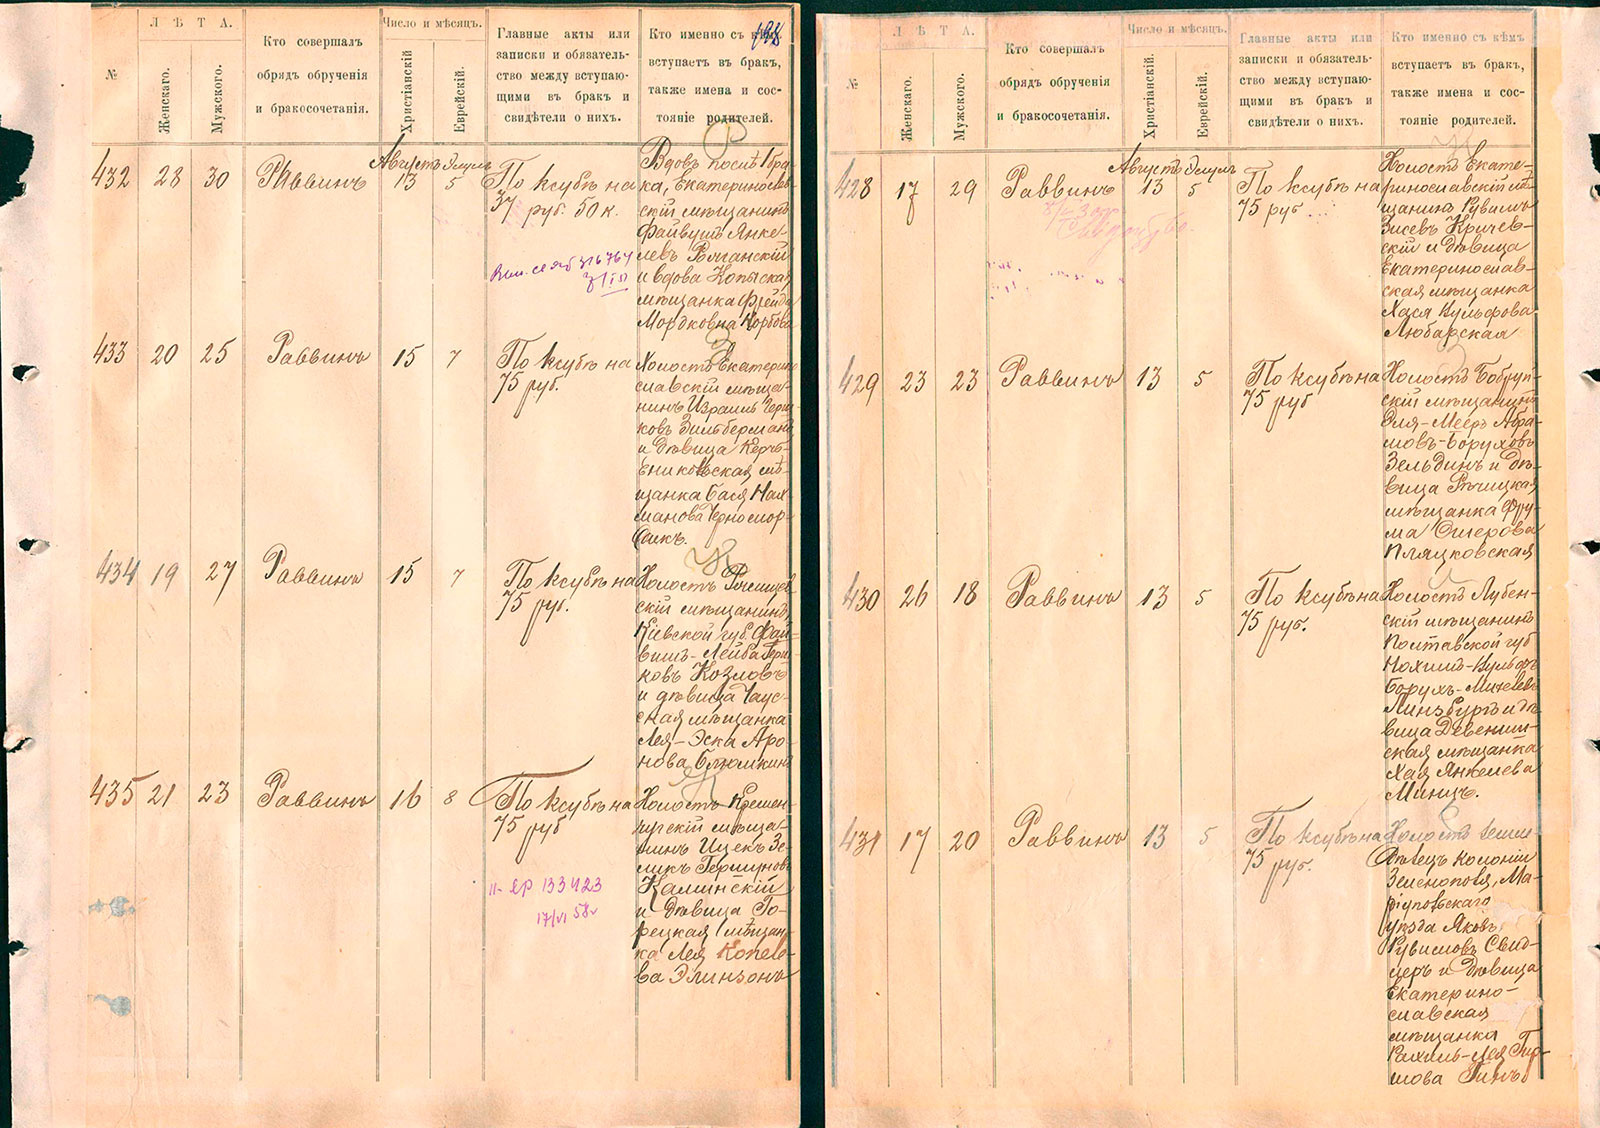 198
ЛѢТА.
Число и мѣсяцъ.
№
Женскаго.
Мужского.
Кто совершалъ
обрядъ обрученія
и бракосочетанія.
Христіанскій
Еврейскій.
Главные акты или
записки и обязатель-
ство между вступаю-
щими въ бракъ и
свидѣтели о нихъ.
Кто именно съ кѣмъ
вступаетъ въ бракъ,
также имена и сос-
тояніе родителей.
Августъ Элулъ
432 28 30 Раввинъ 13 5 По ксубѣ на
37 руб. 50 к.
Вдовъ послѣ 1 бра-
ка, Екатеринослав-
скій мѣщанинъ
Файвушъ Янке-
левъ
и вдова Копыская
мѣщанка Фрейда
Мордковна
316764
433 20 25 Раввинъ 15 7 По ксубѣ на
75 руб.
Холостъ Екатерино-
славскій мѣща-
нинъ Израиль Герш-
ковъ Зильберманъ
и дѣвица Керчь-
Еникольская мѣ-
щанка Бася Нах-
манова Черномор-
дикъ.
434 19 27 Раввинъ 15 7 По ксубѣ на
75 руб.
Холостъ
скій мѣщанинъ
Кіевской губ. Фай-
вишъ-Лейба Герш-
ковъ Козловъ
и дѣвица Чаус-
ская мѣщанка
Лея-Эска Аро-
нова Блюмкинъ
435 21 23 Раввинъ 16 8 По ксубѣ на
75 руб
Холостъ Кременчугскій мѣща-
нинъ Ицекъ Зе-
ликъ Гершуновъ
Каминскій
и дѣвица Го-
рецкая мѣщан-
ка Лея Копеле-
ва Элинзонъ
II-ЕР 133423
17/VI 58г
ЛѢТА.
Число и мѣсяцъ.
№
Женскаго.
Мужского.
Кто совершалъ
обрядъ обрученія
и бракосочетанія.
Христіанскій
Еврейскій.
Главные акты или
записки и обязатель-
ство между вступаю-
щими въ бракъ и
свидѣтели о нихъ.
Кто именно съ кѣмъ
вступаетъ въ бракъ,
также имена и сос-
тояніе родителей.
Августъ Элулъ
428 17 29 Раввинъ 13 5 По ксубѣ на
75 руб
Холостъ Екате-
ринославскій мѣ-
щанинъ Рувимъ
Зисевъ Кричев-
скій и дѣвица
Екатеринослав-
ская мѣщанка
Хася Вульфова
Любарская
429 23 23 Раввинъ 13 5 По ксубѣ на
75 руб
Холостъ Бобруй-
скій мѣщанинъ
Эля-Мееръ Абра-
мовъ-Боруховъ
Зельдинъ и дѣ-
вица Рѣчицкая
мѣщанка Фру-
ма Ошерова
Пляцковская
430 26 18 Раввинъ 13 5 По ксубѣ на
75 руб.
Холостъ Лубен-
скій мѣщанинъ
Полтавской губ
Нохимъ-Вульфъ
Борухъ-Михелевъ
Гинзбургъ и дѣ-
вица Девениш-
ская мѣщанка
Хая Янкелева
Минцъ.
431 17 20 Раввинъ 13 5 По ксубѣ на
75 руб.
Холостъ земле-
дѣлецъ колоніи
Зеленополя, Ма-
ріупольскаго
уѣзда Яковъ
Рувимовъ Свид-
леръ и дѣвица
Екатерино-
славская
мѣщанка
Рахиль-Лея Гир-
шова Гинъ